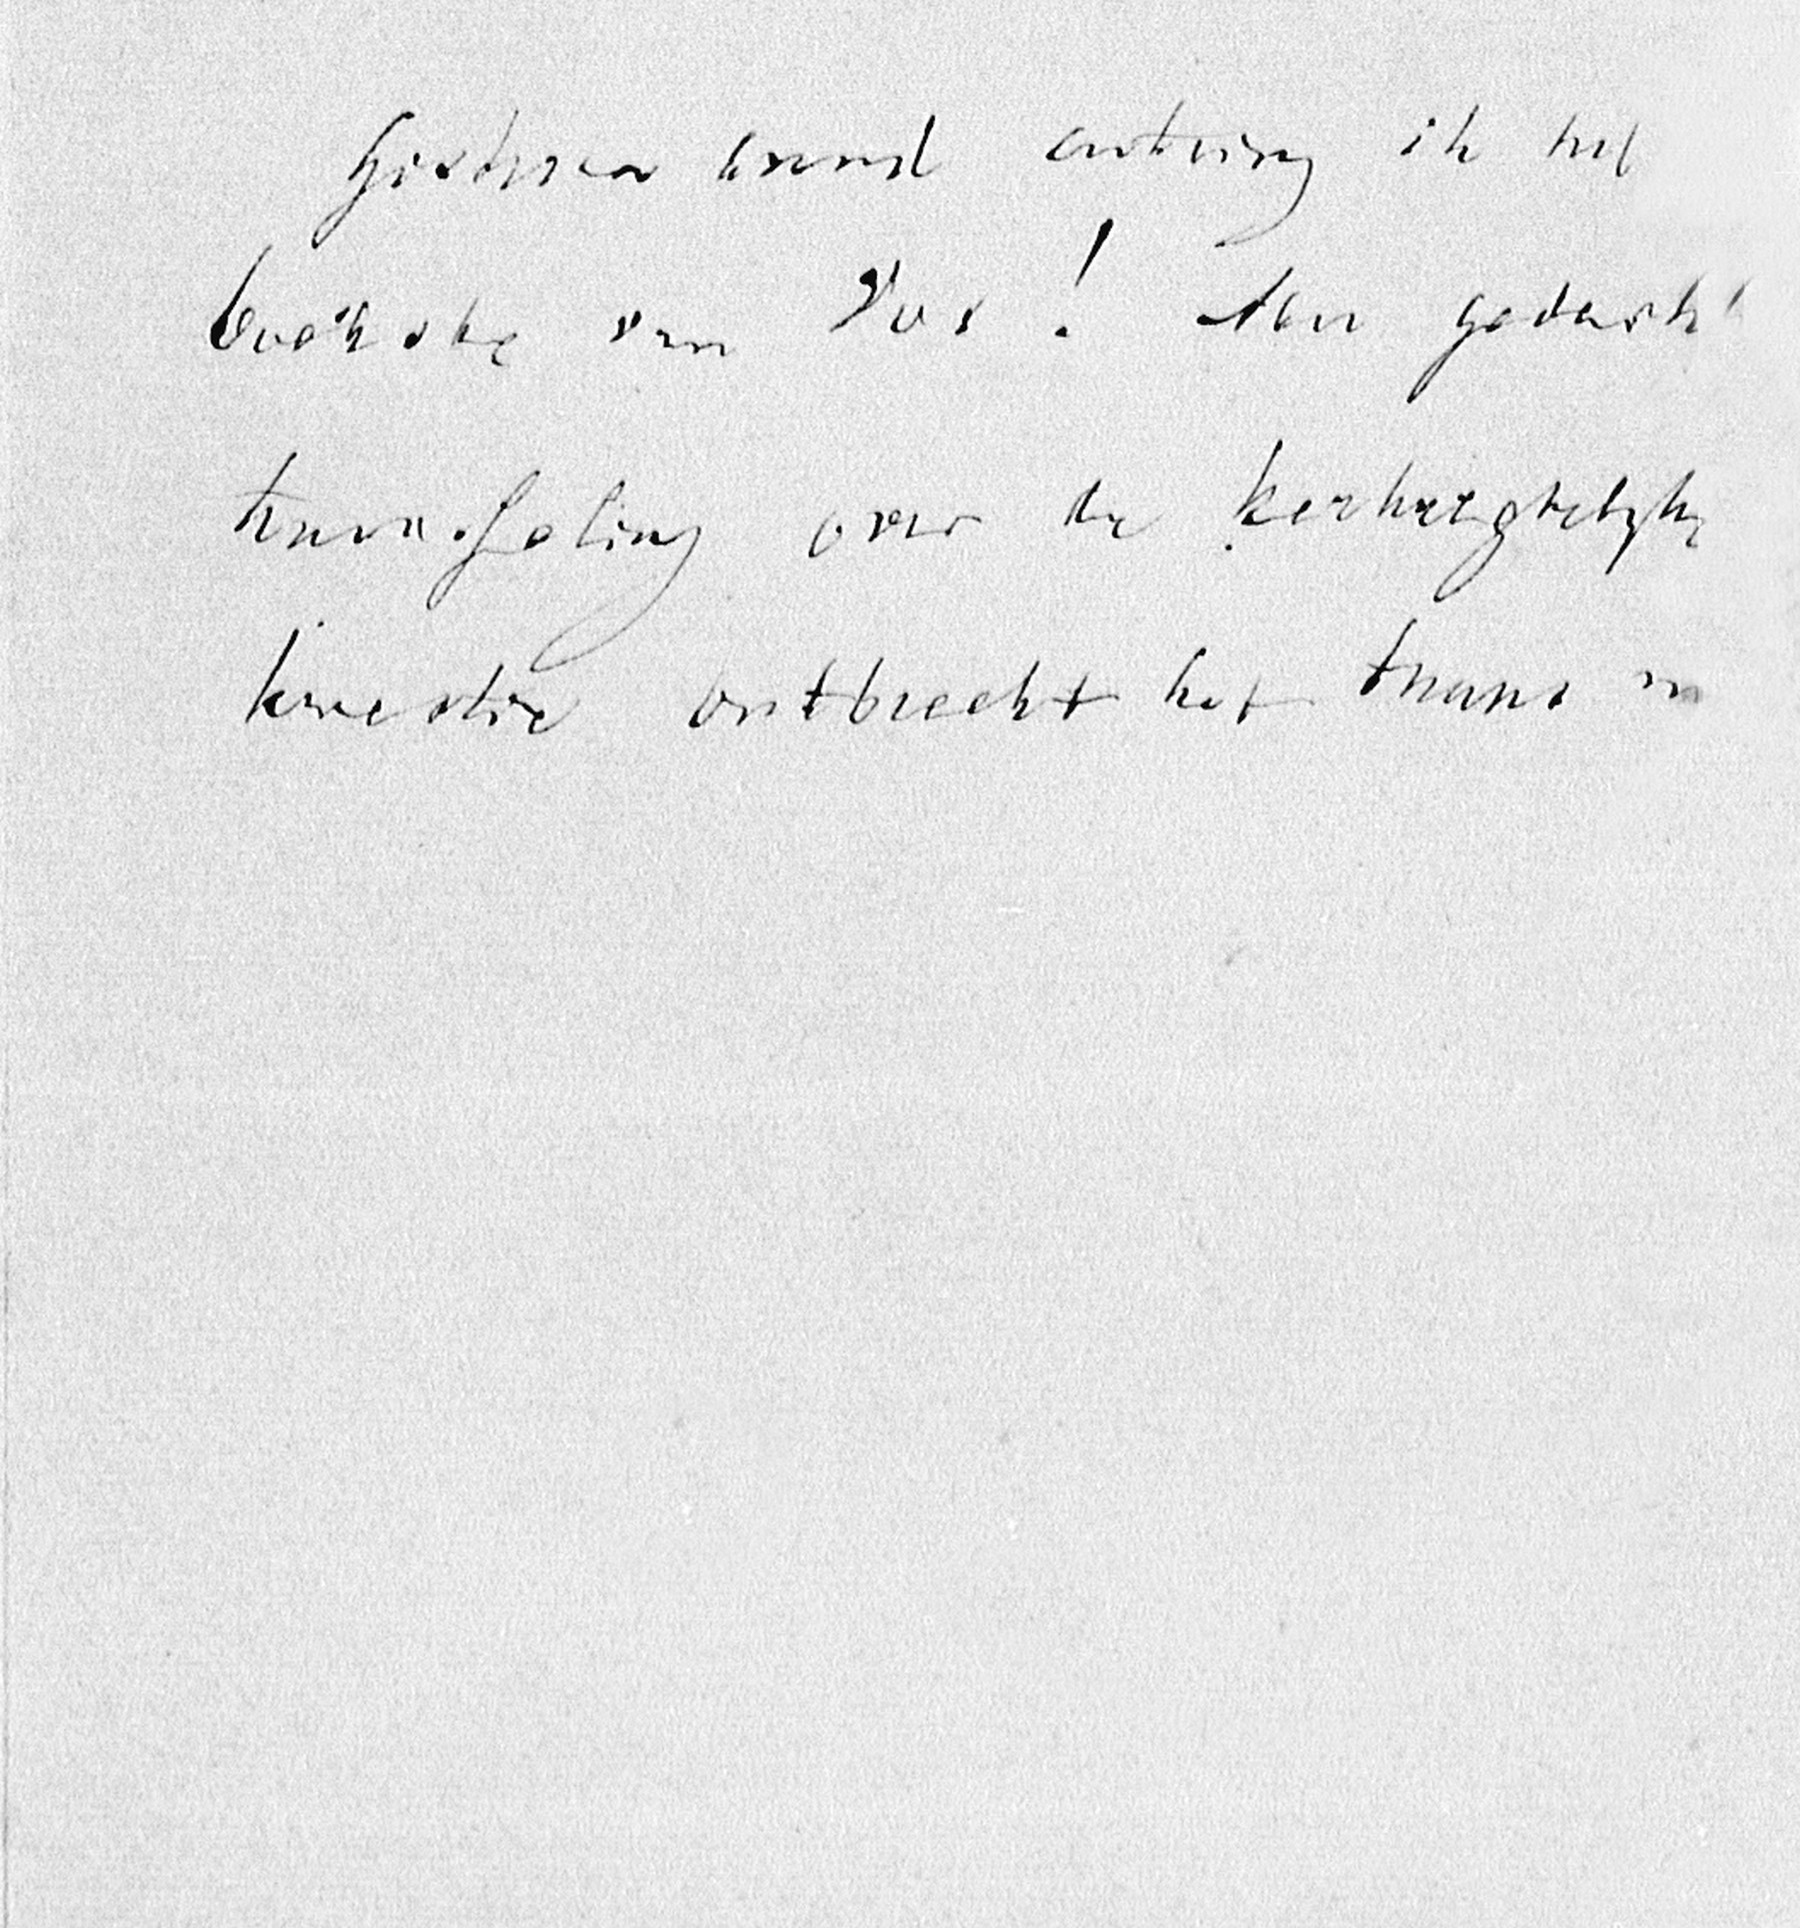 Gisteren avond ontving ik het
boekske van Vos! Aan gedacht
over de kerkregtelijke
kwestie ontbreekt het thans